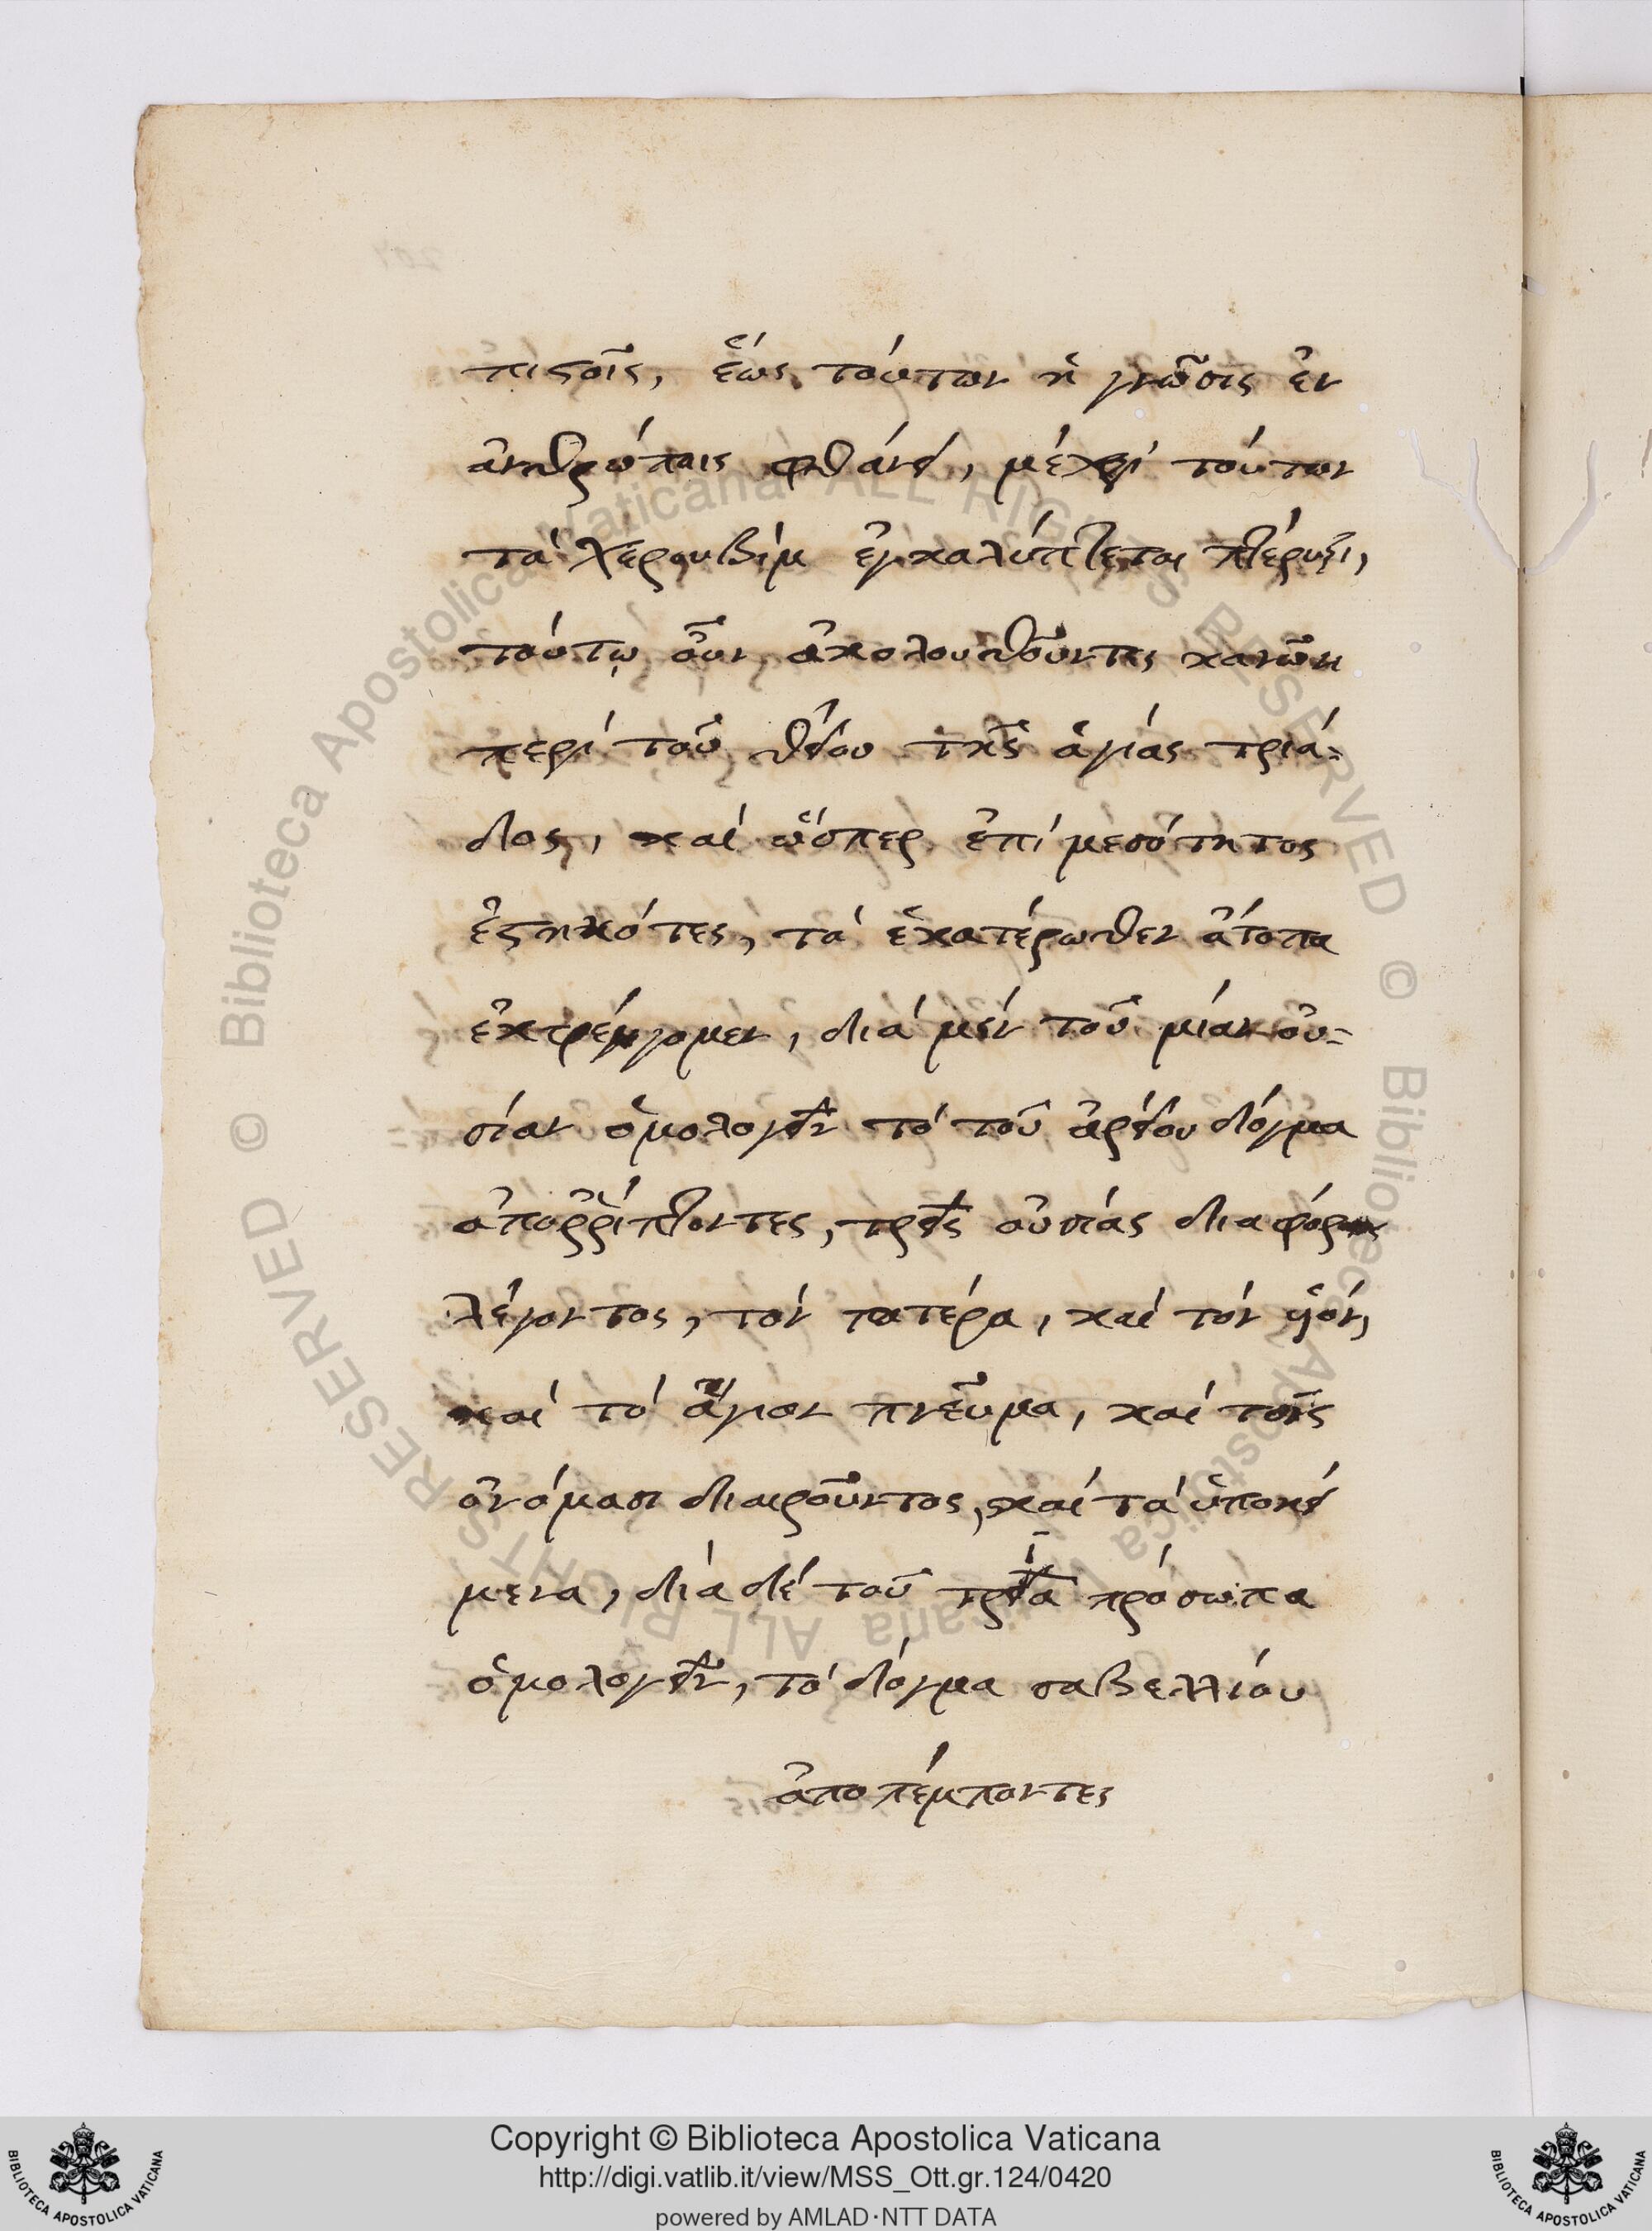 πιστοῖς, ἕως τούτων ἡ γνῶσις ἐν
ἀνθρώποις φθάνει, μέχρι τούτων
τὰ Χερουβὶμ ἐγκαλύπτεται πτέρυξι,
τούτῳ οὖν ἀκολουθοῦντες κανῶνι
περὶ τοῦ θείου τῆς ἁγίας τριά-
δος, καὶ ὥσπερ ἐπὶ μεσότητος
ἑστηκότες, τὰ ἑκατέρωθεν ἄτοπα
ἐκτρέπομεν, διὰ μὲν τοῦ μίαν οὐ-
σίαν ὁμολογεῖν τὸ τοῦ ἀρείου δόγμα
ἀποῤῥίπτοντες, τρεῖς οὐσίας διαφόρους
λέγοντος, τὸν πατέρα, καὶ τὸν υἱόν,
καὶ τὸ ἅγιον πνεῦμα, καὶ τοῖς
ὀνόμασι διαιροῦντος, καὶ τὰ ὑποκεί
μενα, διὰ δὲ τοῦ τρία πρόσωπα
ὁμολογεῖν, τὸ δόγμα σαβελλίου
ἀποπέμποντες
© Biblioteca Apostolica Vaticana ALL RIGHTS RESERVED © Biblioteca Apostolica Vaticana ALL RIGHTS RESERVED
Copyright © Biblioteca Apostolica Vaticana
http://digi.vatlib.it/view/MSS_Ott.gr.124/0420
powered by AMLAD·NTT DATA
BIBLIOTECA APOSTOLICA VATICANA
BIBLIOTECA APOSTOLICA VATICANA